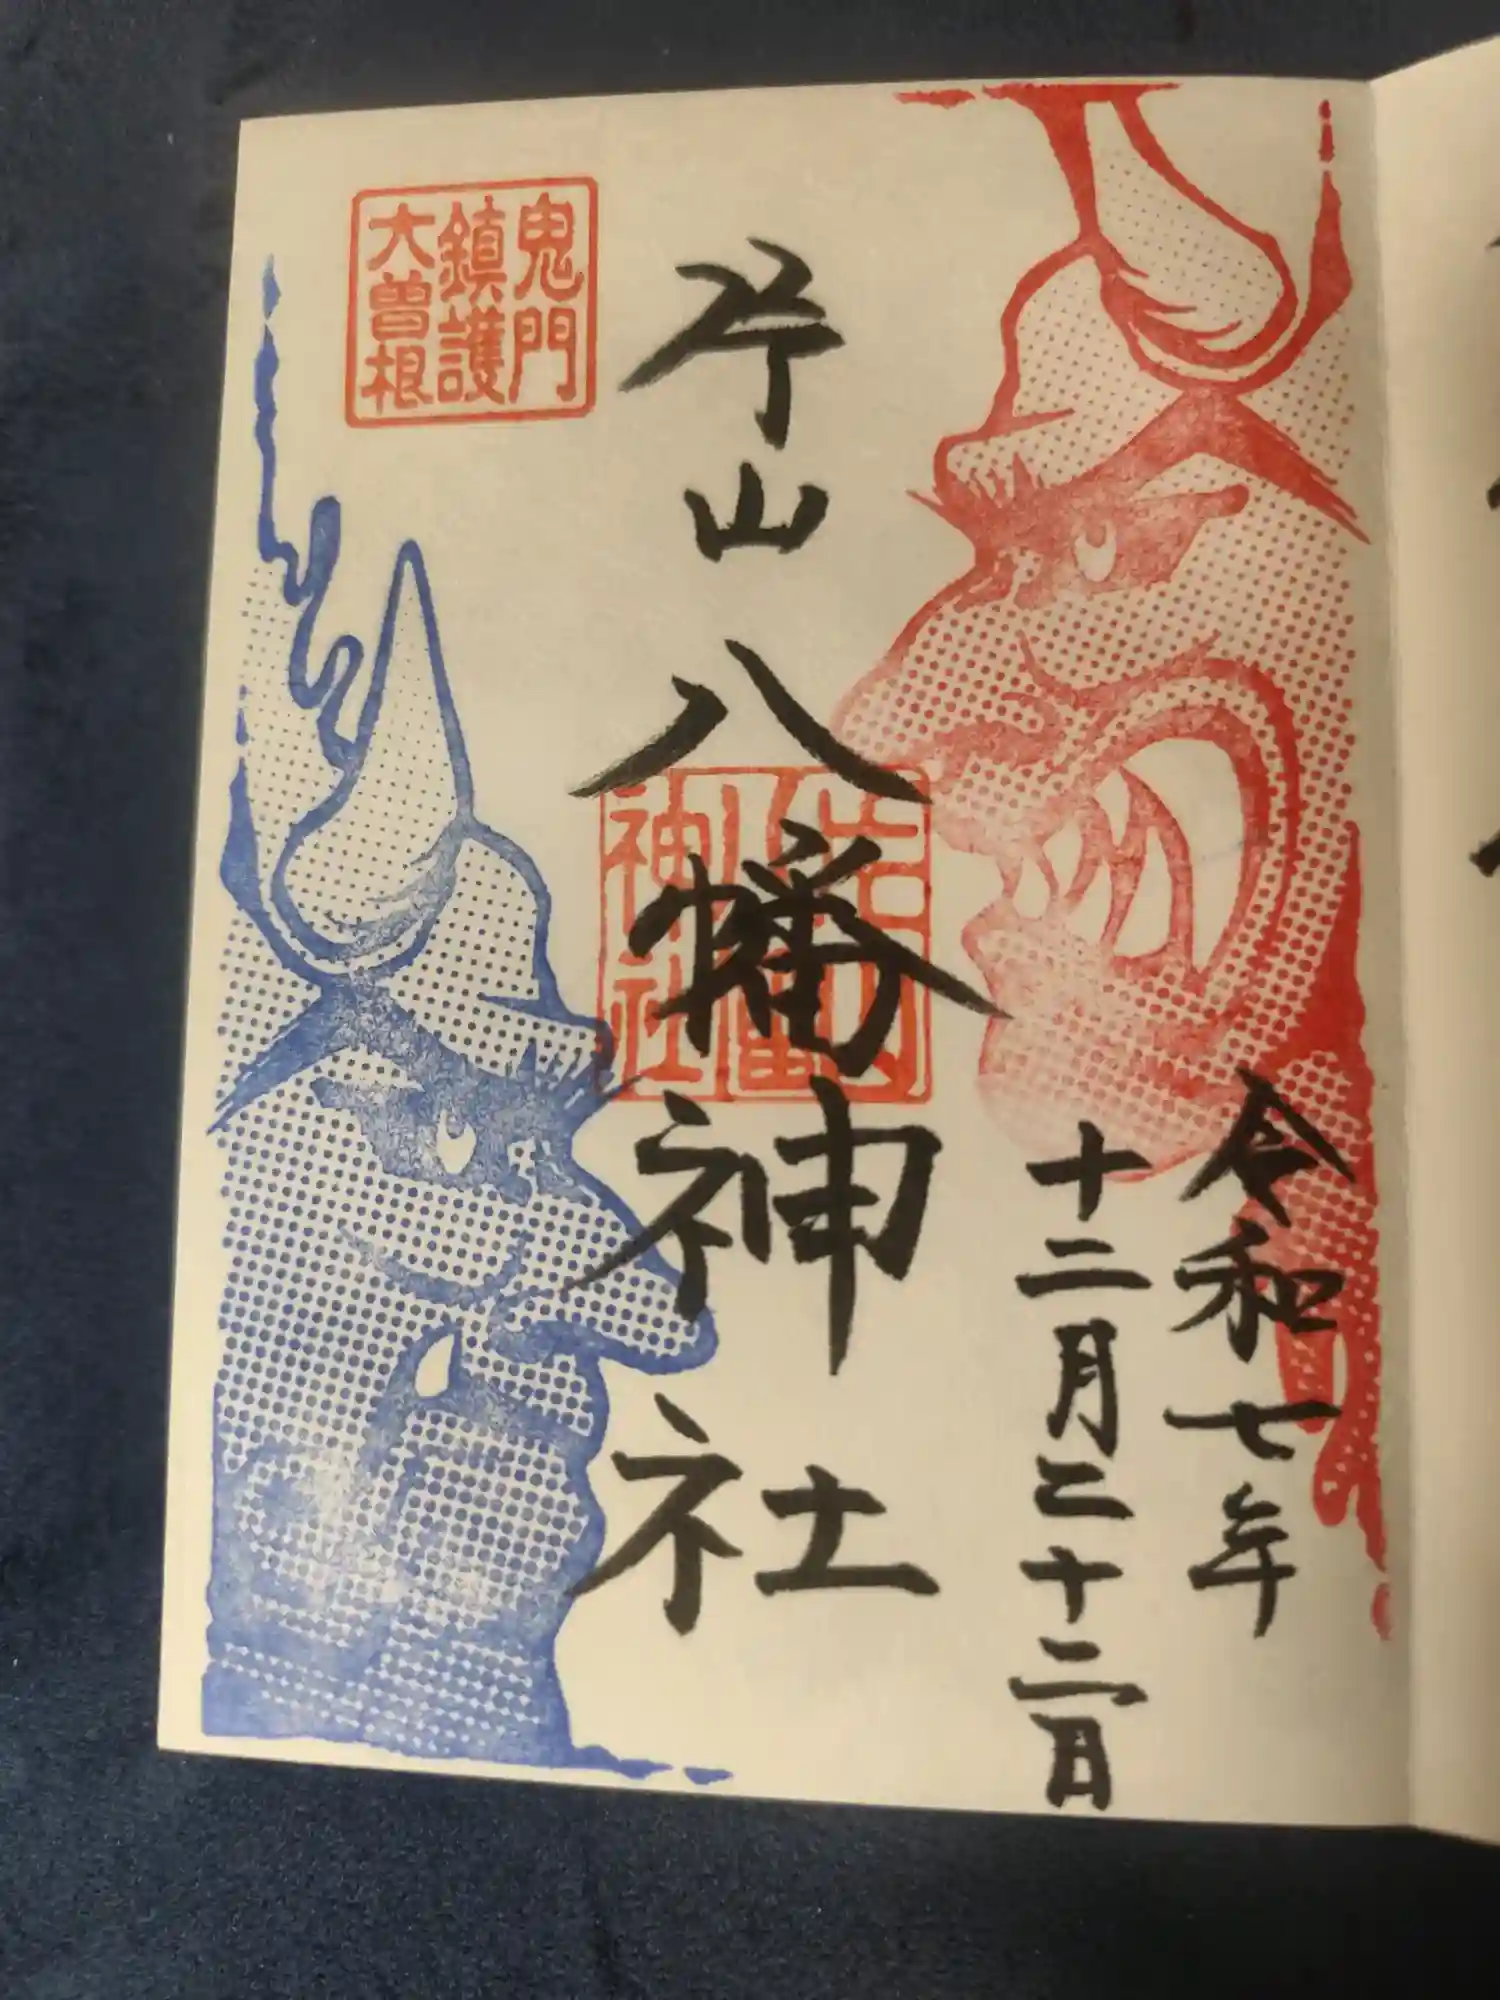 令和七年
十二月二十二日
片山八幡神社
片山
八幡
神社
鬼門
鎮護
大曽根